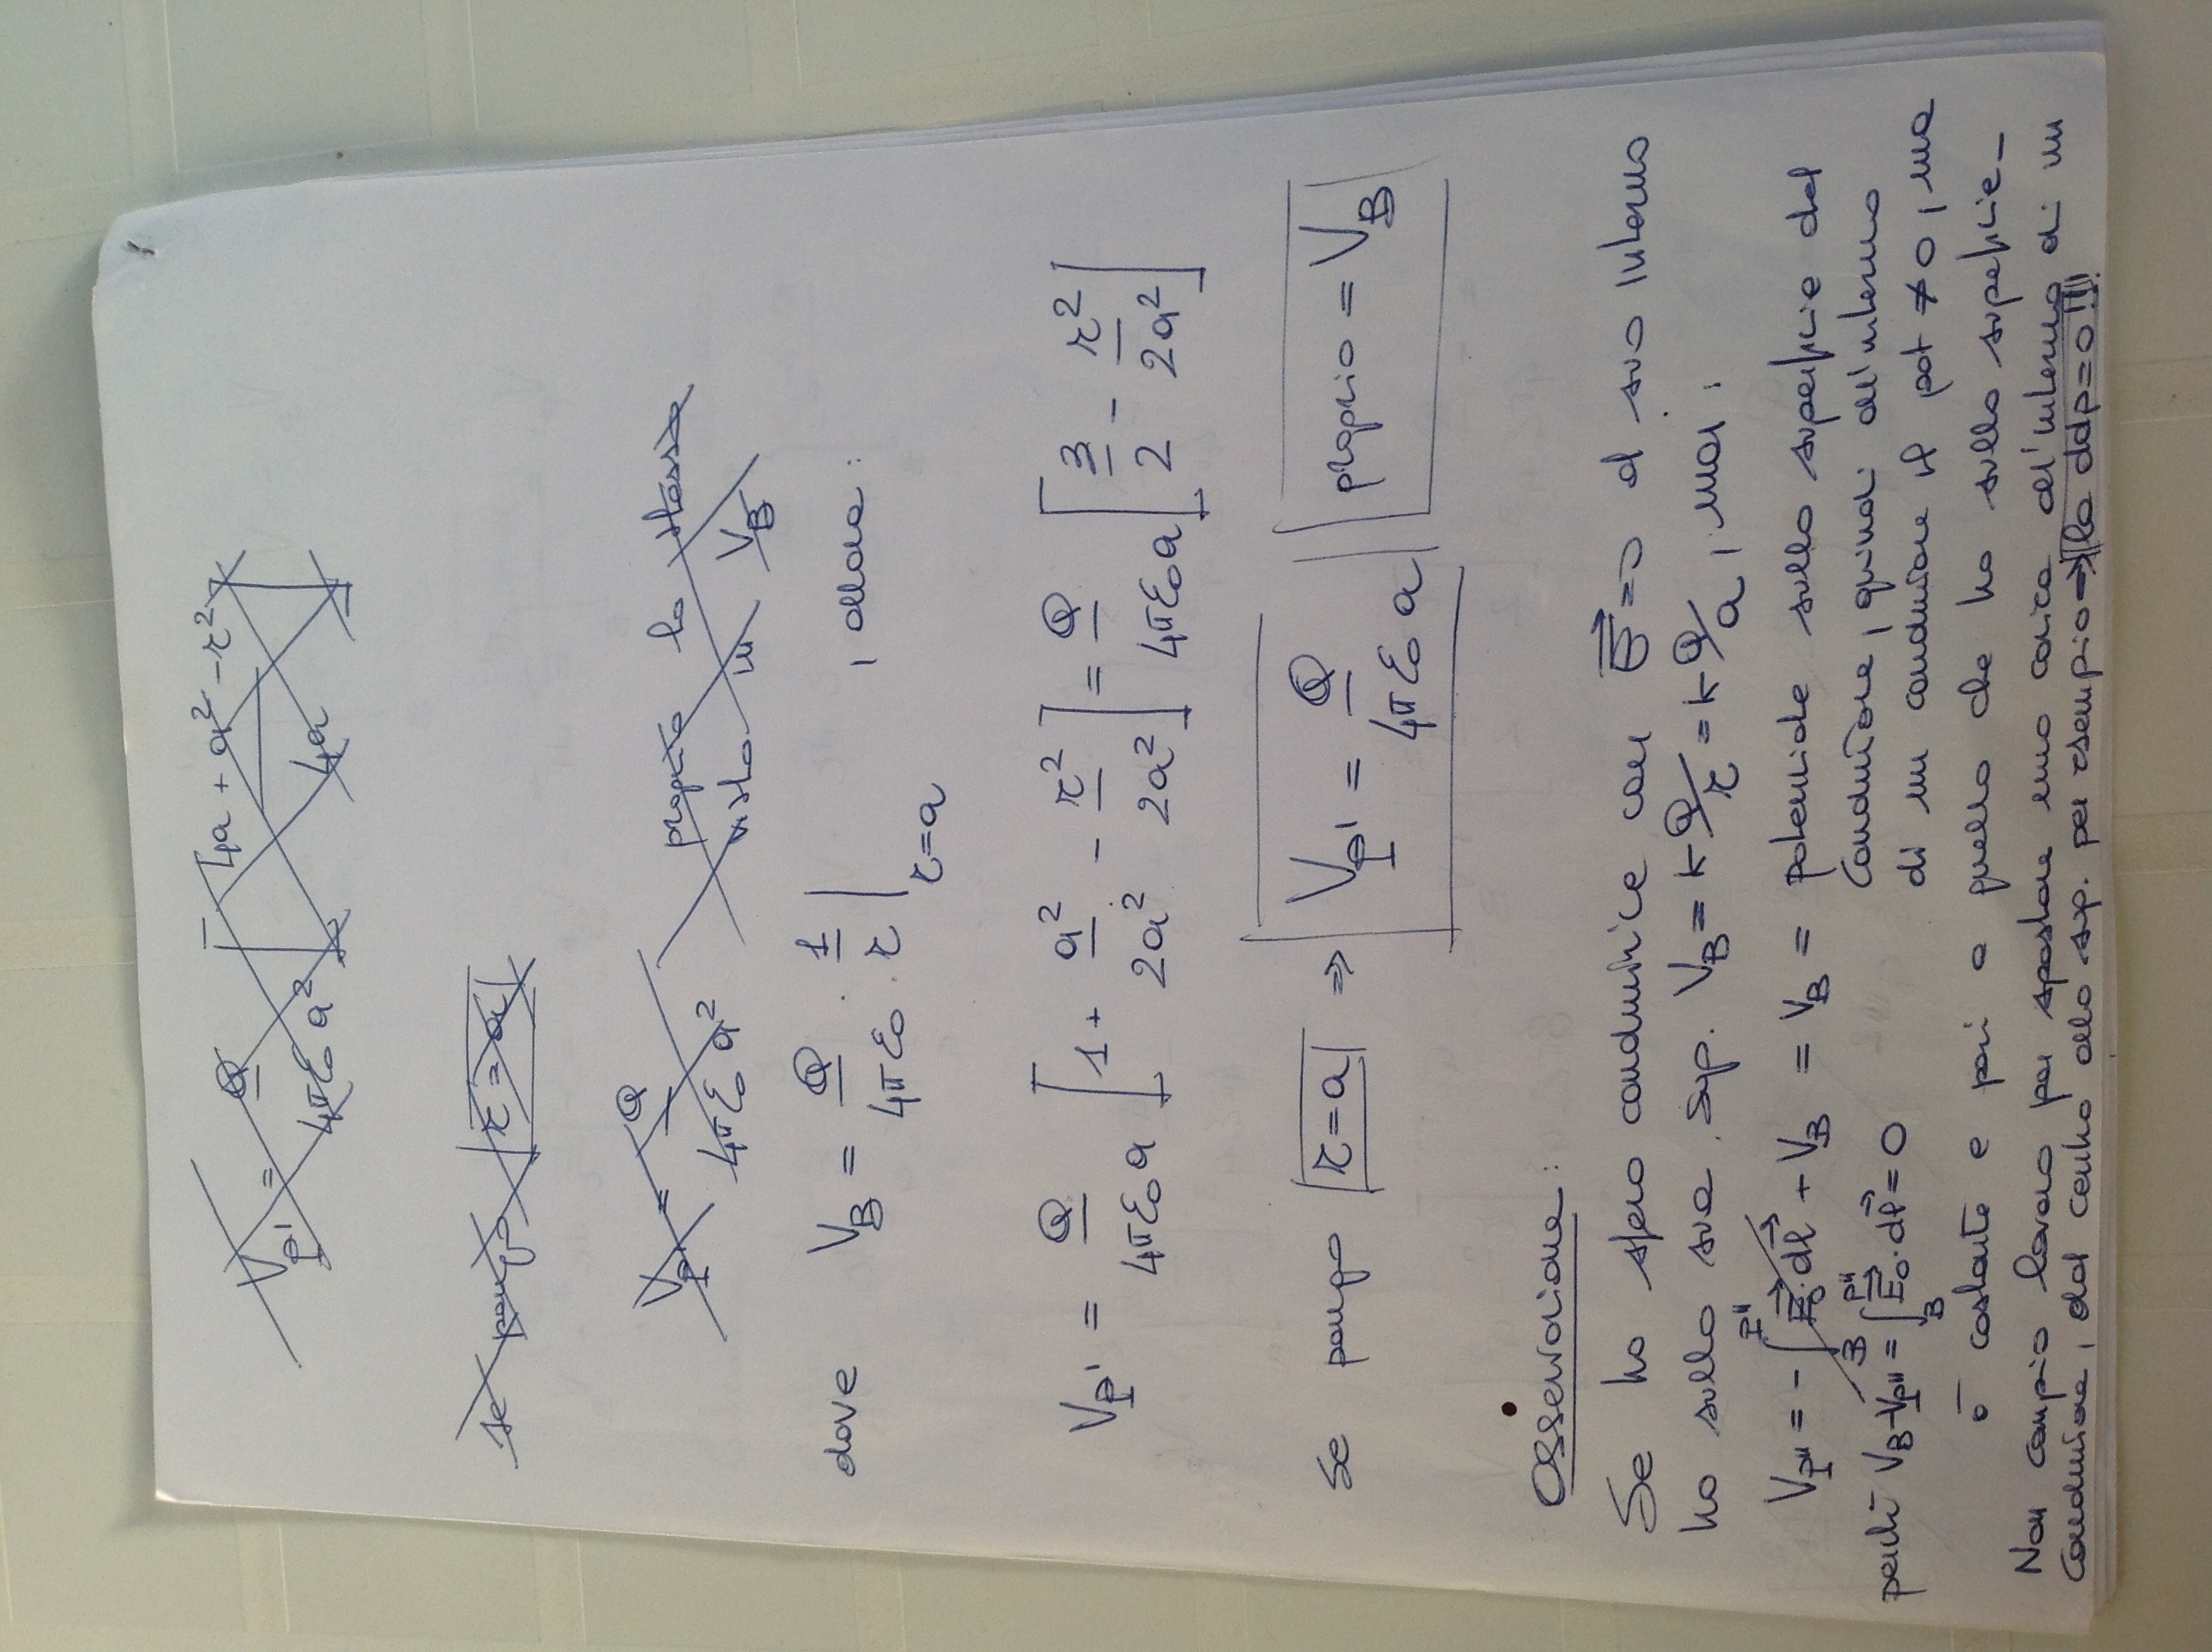 V_P' = Q / 4πε₀ a² [ 4a + a² - r² / 4a ]
se pongo r = a
V_P' = Q / 4πε₀ a² proprio lo stesso
visto in V_B
dove V_B = Q / 4πε₀ · 1 / r |r=a , allora :
V_P' = Q / 4πε₀ a [ 1 + a² / 2a² - r² / 2a² ] = Q / 4πε₀ a [ 3 / 2 - r² / 2a² ]
Se pongo r=a ⇒ V_P' = Q / 4πε₀ a proprio = V_B
Osservazione :
Se ho sfera conduttrice con E⃗=0 al suo interno
ho sulla sua sup. V_B = k Q/r = k Q/a , ma :
V_P" = - ∫_B^P" E⃗₀·dl⃗ + V_B = V_B = potenziale sulla superficie del
conduttore, quindi all'interno
perché V_B-V_P" = ∫_B^P" E⃗₀·dl⃗ = 0
di un conduttore il pot ≠ 0, ma
è costante e pari a quello che ho sulla superficie_
Non compio lavoro per spostare una carica all'interno di un
conduttore, dal centro alla sup. per esempio ⇒ la ddp=0!!!